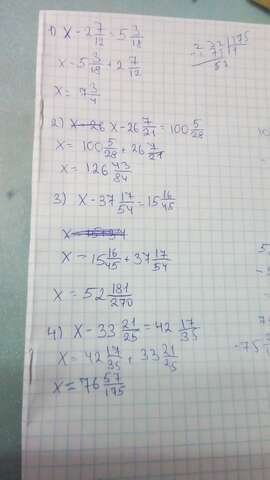 1) x - 2 7/12 = 5 3/18
x = 5 3/18 + 2 7/12
x = 7 3/4
232 | 175
57
2) x - 26 7/21 = 100 5/28
x = 100 5/28 + 26 7/21
x = 126 43/84
3) x - 37 17/54 = 15 16/45
x = 15 16/45 + 37 17/54
x = 52 181/270
4) x - 33 21/25 = 42 17/35
x = 42 17/35 + 33 21/25
x = 76 57/175